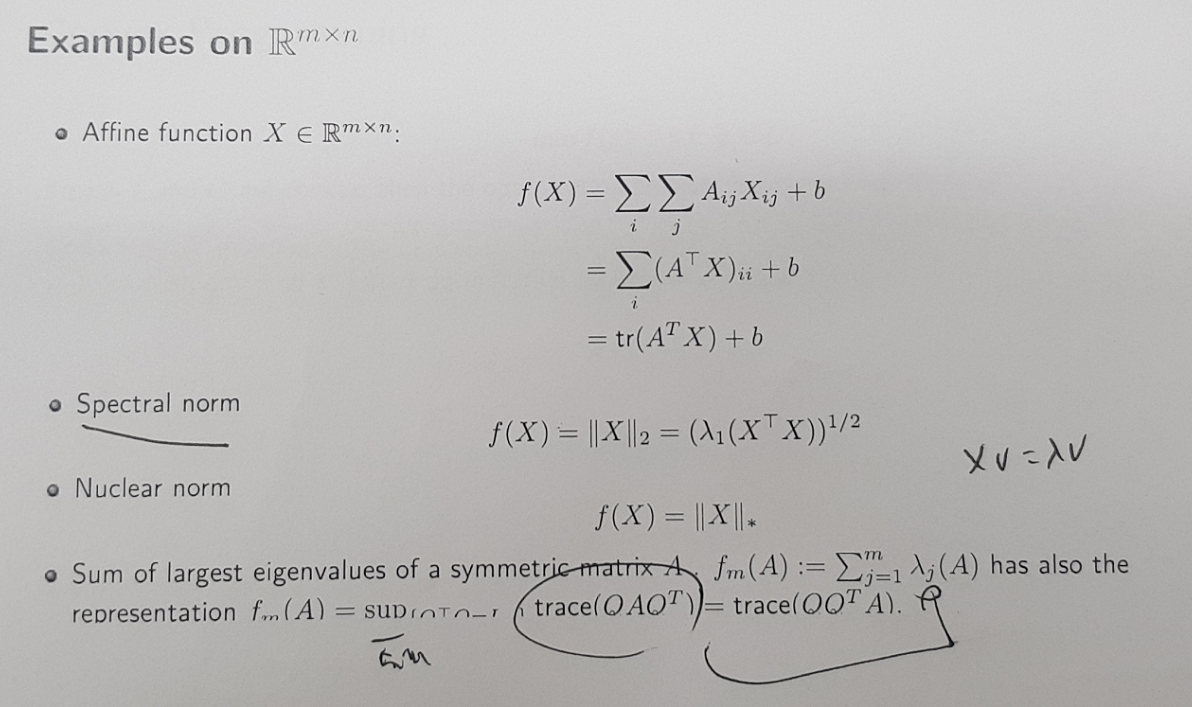 Examples on ℝ^{m×n}
• Affine function X ∈ ℝ^{m×n}:
f(X) = ∑_i ∑_j A_{ij} X_{ij} + b
= ∑_i (A^⊤ X)_{ii} + b
= tr(A^T X) + b
• Spectral norm
f(X) = ‖X‖_2 = (λ_1(X^⊤ X))^{1/2}
Xv = λv
• Nuclear norm
f(X) = ‖X‖_*
• Sum of largest eigenvalues of a symmetric matrix A, f_m(A) := ∑_{j=1}^m λ_j(A) has also the
representation f_m(A) = sup trace(QAQ^T) = trace(QQ^T A).